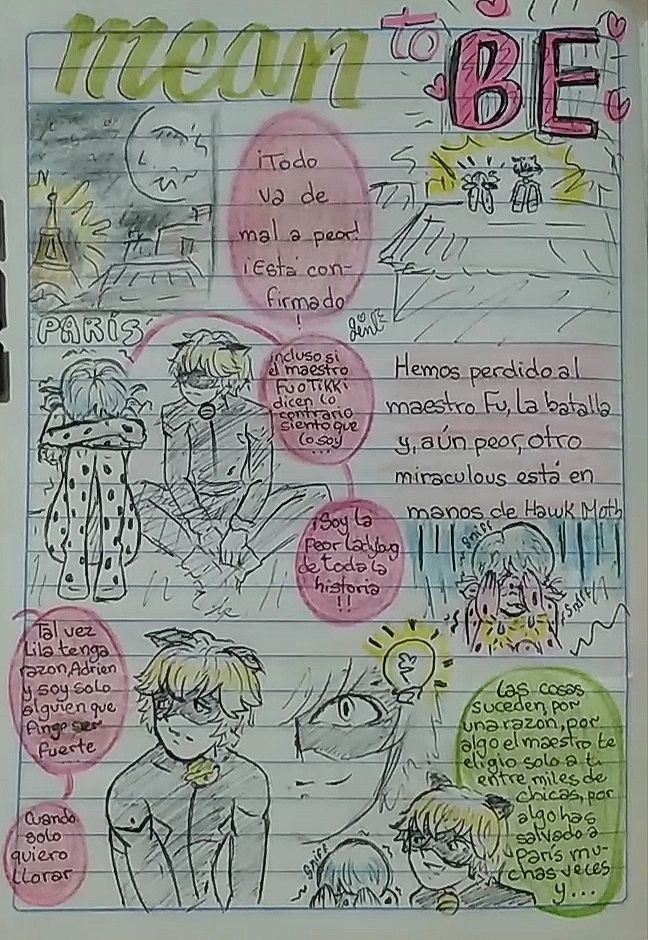 mean to BE
¡Todo
va de
mal a peor!
¡Está con-
firmado
!
PARÍS
incluso si
el maestro
Fu o Tikki
dicen lo
contrario
siento que
lo soy
...
Hemos perdido al
maestro Fu, la batalla
y, aún peor, otro
miraculous está en
manos de Hawk Moth
¡Soy la
peor ladybug
de toda la
historia
!!
Sniff
Sniff
Tal vez
Lila tenga
razon, Adrien
y soy solo
alguien que
finge ser
fuerte
...
Cuando
solo
quiero
llorar
Las cosas
suceden por
una razon, por
algo el maestro te
eligio solo a ti
entre miles de
chicas, por
algo has
salvado a
París mu-
chas veces
y...
Sniff